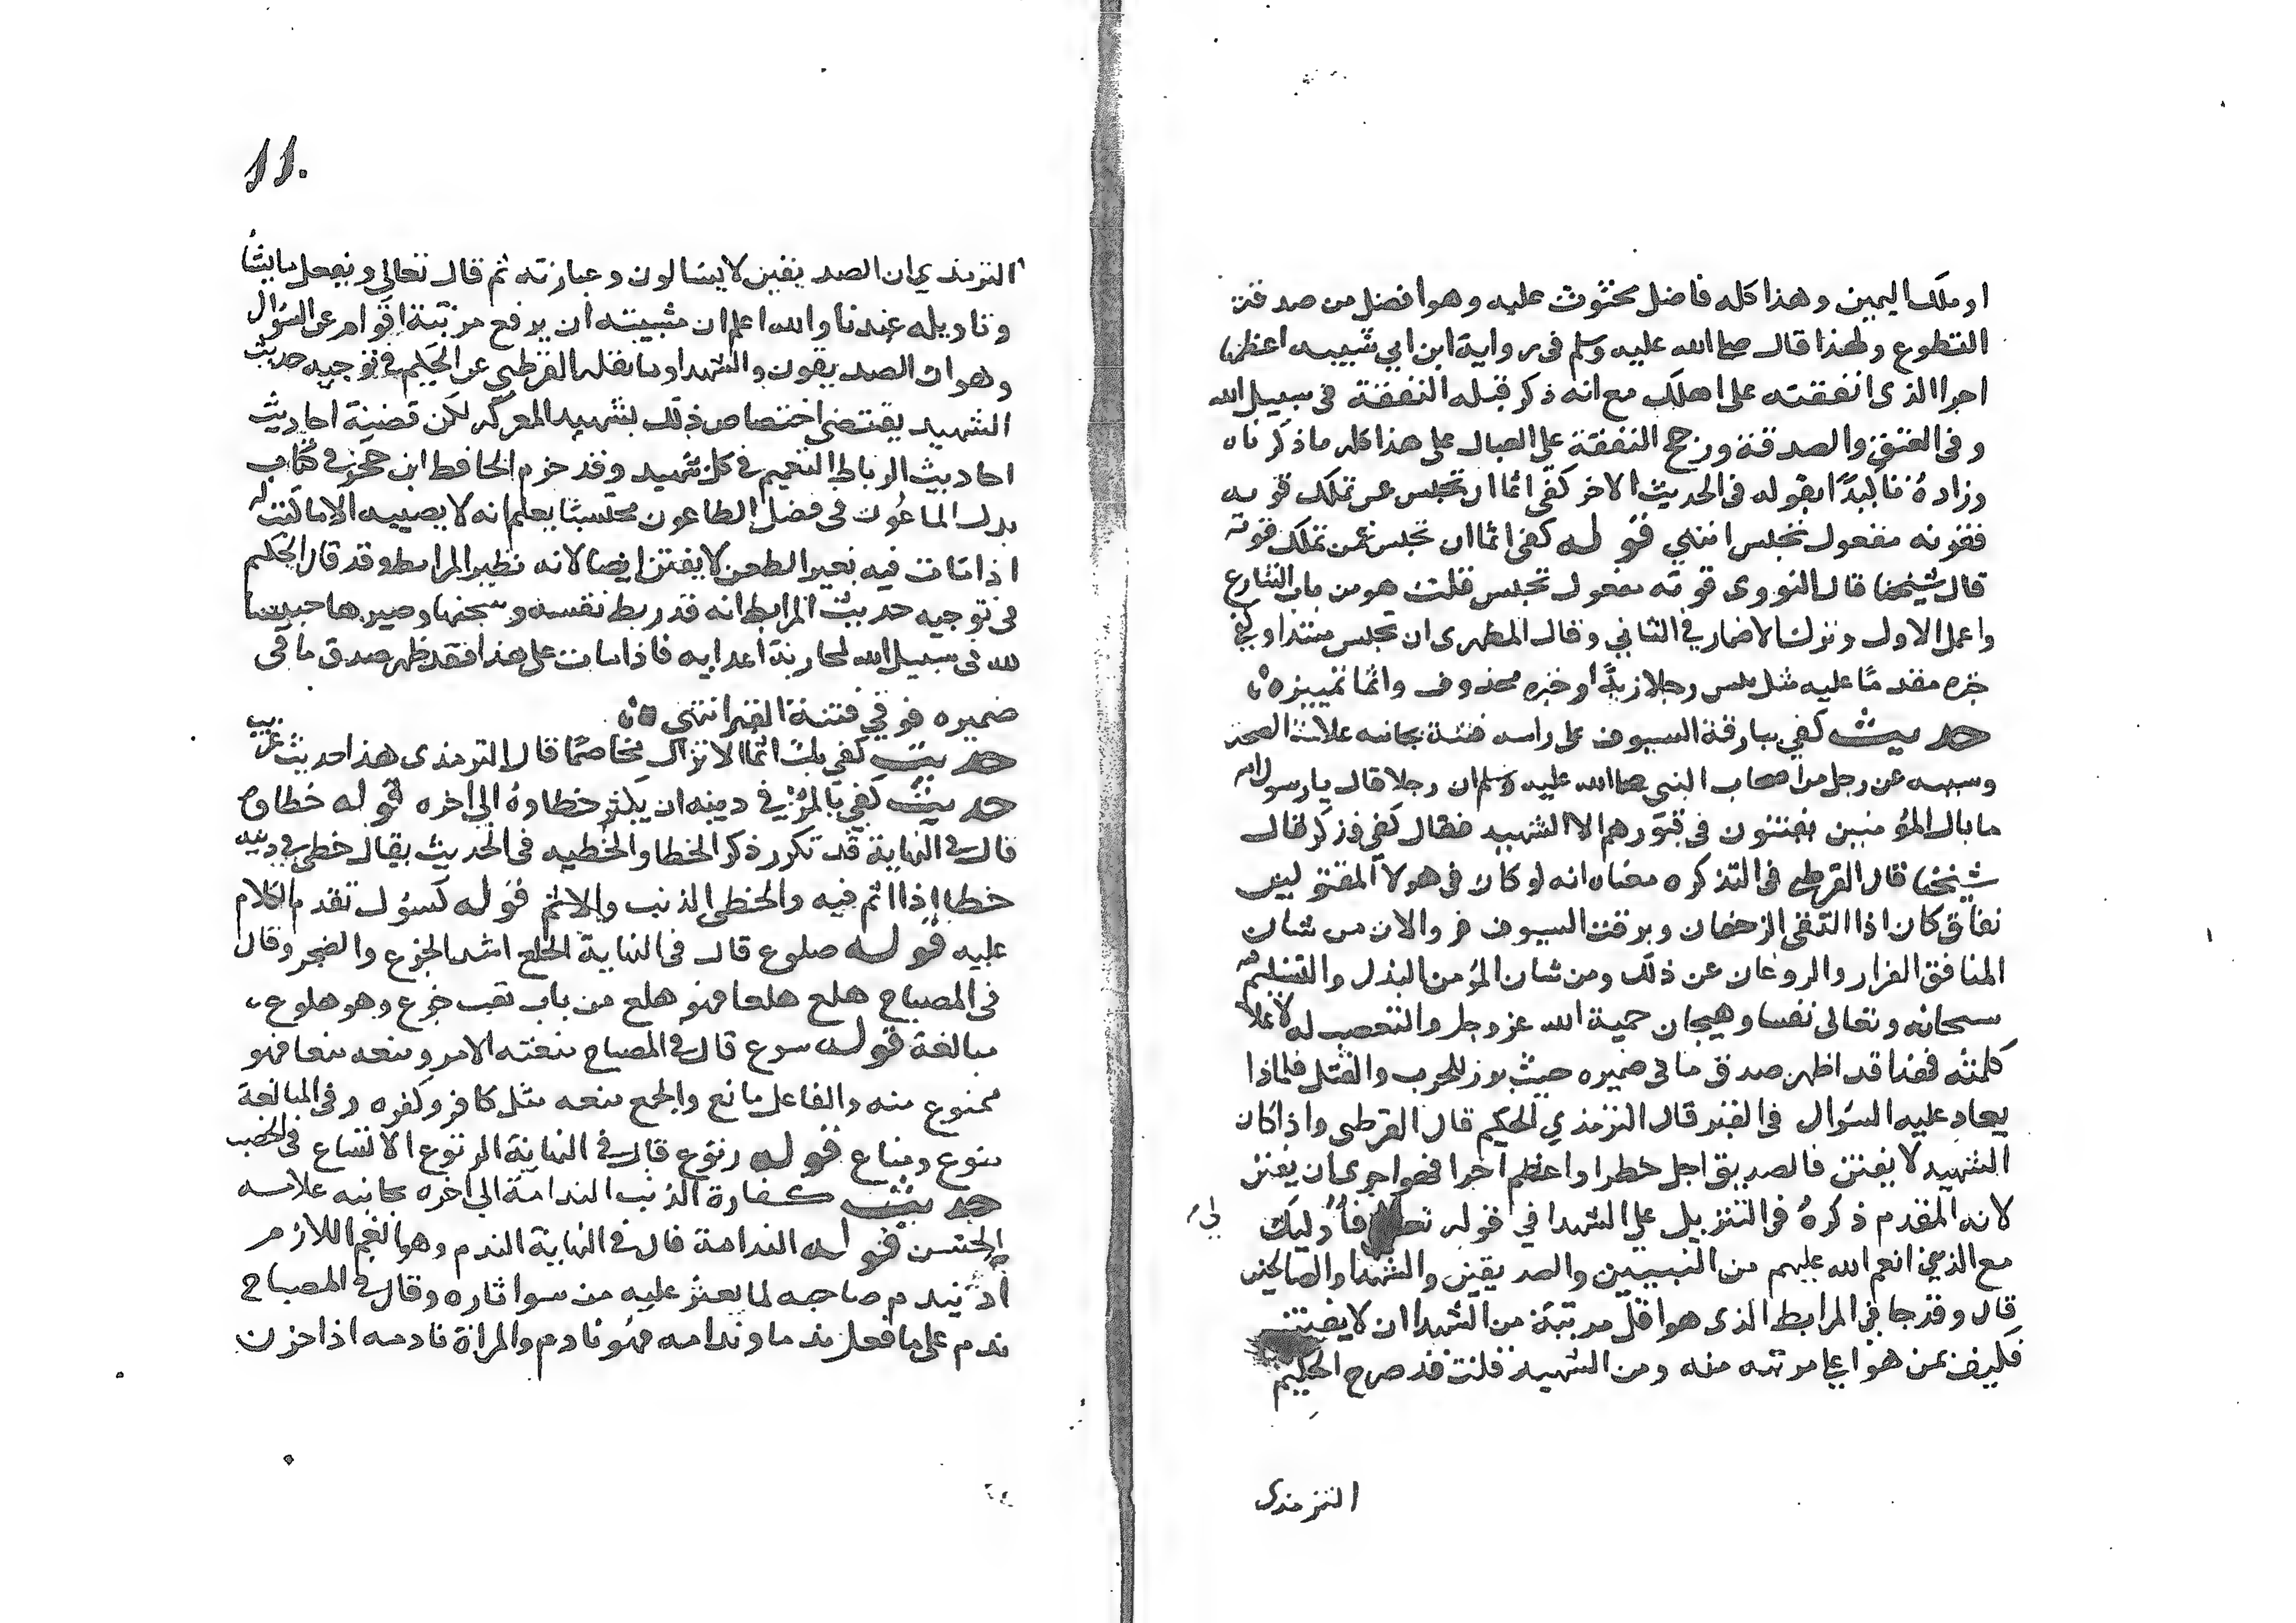 او ملك اليمين وهذا كله فاضل محثوث عليه وهو افضل من صدقة
التطوع ولهذا قال صلى الله عليه وسلم فى رواية ابن ابي شيبه اعظمها
اجرا الذى انفقته على اهلك مع انه ذكر قبله النفقة فى سبيل الله
وفى العتق والصدقة ورجح النفقة على العيال على هذا كله ما ذكرناه
وزاده تاكيدًا بقوله فى الحديث الاخر كفى اثما ان تحبس عمن تملك قوته
فقوته مفعول تحبس انتهي قوله كفى اثما ان تحبس عمن تملك قوته
قال شيخنا قال النووى قوته مفعول تحبس قلت هو من باب التنازع
واعمل الاول وترك الاضمار في الثاني وقال المظهرى ان تحبس مبتدا وكفى
خبره مقدمًا عليه مثل بئس رجلا زيدًا او خبره محذوف واثما تمييزه
حديث كفي ببارقة السيوف على راسه فتنة بجانبه علامة الصحة
وسببه عن رجل من اصحاب النبي صلى الله عليه وسلم ان رجلا قال يا رسول الله
ما بال المؤمنين يفتنون فى قبورهم الا الشهيد فقال كفى فذكر قال
شيخنا قال القرطبى فى التذكره معناه انه لو كان فى هولا المقتولين
نفاق كان اذا التقى الزحفان وبرقت السيوف فروا لان من شان
المنافق الفرار والروغان عن ذلك ومن شان المؤمن البذل والتسليم لله
سبحانه وتعالى نفسا وهيجان حمية الله عز وجل والتعصب له لاعلا
كلمته فهذا قد اظهر صدق ما فى ضميره حيث برز للحرب والقتل فلماذا
يعاد عليه السؤال فى القبر قال الترمذي الحكيم قال القرطبى واذا كان
الشهيد لا يفتن فالصديق اجل خطرا واعظم اجرا فهو احرى ان يفتن
لانه المقدم ذكره فى التنزيل على الشهدا في قوله تعالى فأوليك
لى
مع الذين انعم الله عليهم من النبيين والصديقين والشهدا والصالحين
قال وقد جا في المرابط الذى هو اقل مرتبة من الشهدا ان لا يفتن
فكيف بمن هو اعلا مرتبه منه ومن الشهيد قلت قد صرح الحكيم
الترمذى
11.
الترمذي ان الصديقين لا يسالون وعبارته ثم قال تعالى ويفعل ما يشا
وتاويله عندنا والله اعلم ان مشيته ان يرفع مرتبة اقوام عن السؤال
وهو ان الصديقون والشهدا وما نقله القرطبي عن الحكيم فى توجيه حديث
الشهيد يقتضي اختصاص ذلك بشهيد المعركه لكن قضية احاديث
احاديث الرباط التعميم فى كل شهيد وقد جزم الحافظ ابن حجر فى كتاب
بذل الماعون فى فضل الطاعون محتسبا يعلم انه لا يصيبه الا ما كتب له
اذا مات فيه بغير الطعن لا يفتن ايضا لانه نظير المرابط وقد قال الحكيم
فى توجيه حديث المرابط انه قد ربط نفسه وسجنها وصيرها حبيسا
لله فى سبيل الله لمحاربة اعدايه فاذا مات على هذا فقد ظهر صدق ما فى
ضميره فوقي فتنة القبر انتهى
حديث كفي بك اثما الا تزال مخاصمًا قال الترمذى هذا حديث غريب
حديث كفي بالمرء في دينه ان يكثر خطاوه الى اخره قوله خطاوه
قال فى النهاية قد تكرر ذكر الخطا والخطيه فى الحديث يقال خطى في دينه
خطا اذا اثم فيه والخطى الذنب والاثم قوله كسول تقدم الكلام
عليه قوله هلوع قال فى النهاية الهلع اشد الجزع والضجر وقال
فى المصباح هلع هلعا فهو هلع من باب تعب جزع وهو هلوع
مبالغة قوله منوع قال فى المصباح منعته الامر ومنعه منعا فهو
ممنوع منه والفاعل مانع والجمع منعه مثل كافر وكفره وفى المبالغة
منوع ومناع قوله رتوع قال فى النهاية الرتوع الاتساع فى الخصب
حديث كفارة الذنب الندامة الى اخره بجانبه علامة
الحسن قوله الندامة قال فى النهاية الندم وهو الغم اللازم
اذ يندم صاحبه لما يعثر عليه من سوا ثاره وقال فى المصباح
ندم على ما فعل ندما وندامه فهو نادم والمراة نادمه اذا حزن